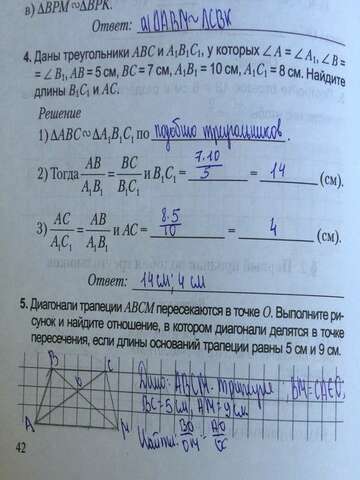 в) ΔBPM ∾ ΔBPK.
Ответ: а) ΔABN ∾ ΔCBK
4. Даны треугольники ABC и A₁B₁C₁, у которых ∠A = ∠A₁, ∠B =
= ∠B₁, AB = 5 см, BC = 7 см, A₁B₁ = 10 см, A₁C₁ = 8 см. Найдите
длины B₁C₁ и AC.
Решение
1) ΔABC ∾ ΔA₁B₁C₁ по подобию треугольников.
2) Тогда AB/A₁B₁ = BC/B₁C₁ и B₁C₁ = 7·10/5 = 14 (см).
3) AC/A₁C₁ = AB/A₁B₁ и AC = 8·5/10 = 4 (см).
Ответ: 14 см; 4 см
5. Диагонали трапеции ABCM пересекаются в точке O. Выполните ри-
сунок и найдите отношение, в котором диагонали делятся в точке
пересечения, если длины оснований трапеции равны 5 см и 9 см.
B C
O
A M
Дано: ABCM - трапеция
BC = 5 см, AM = 9 см
Найти: BO/OM = AO/OC
42